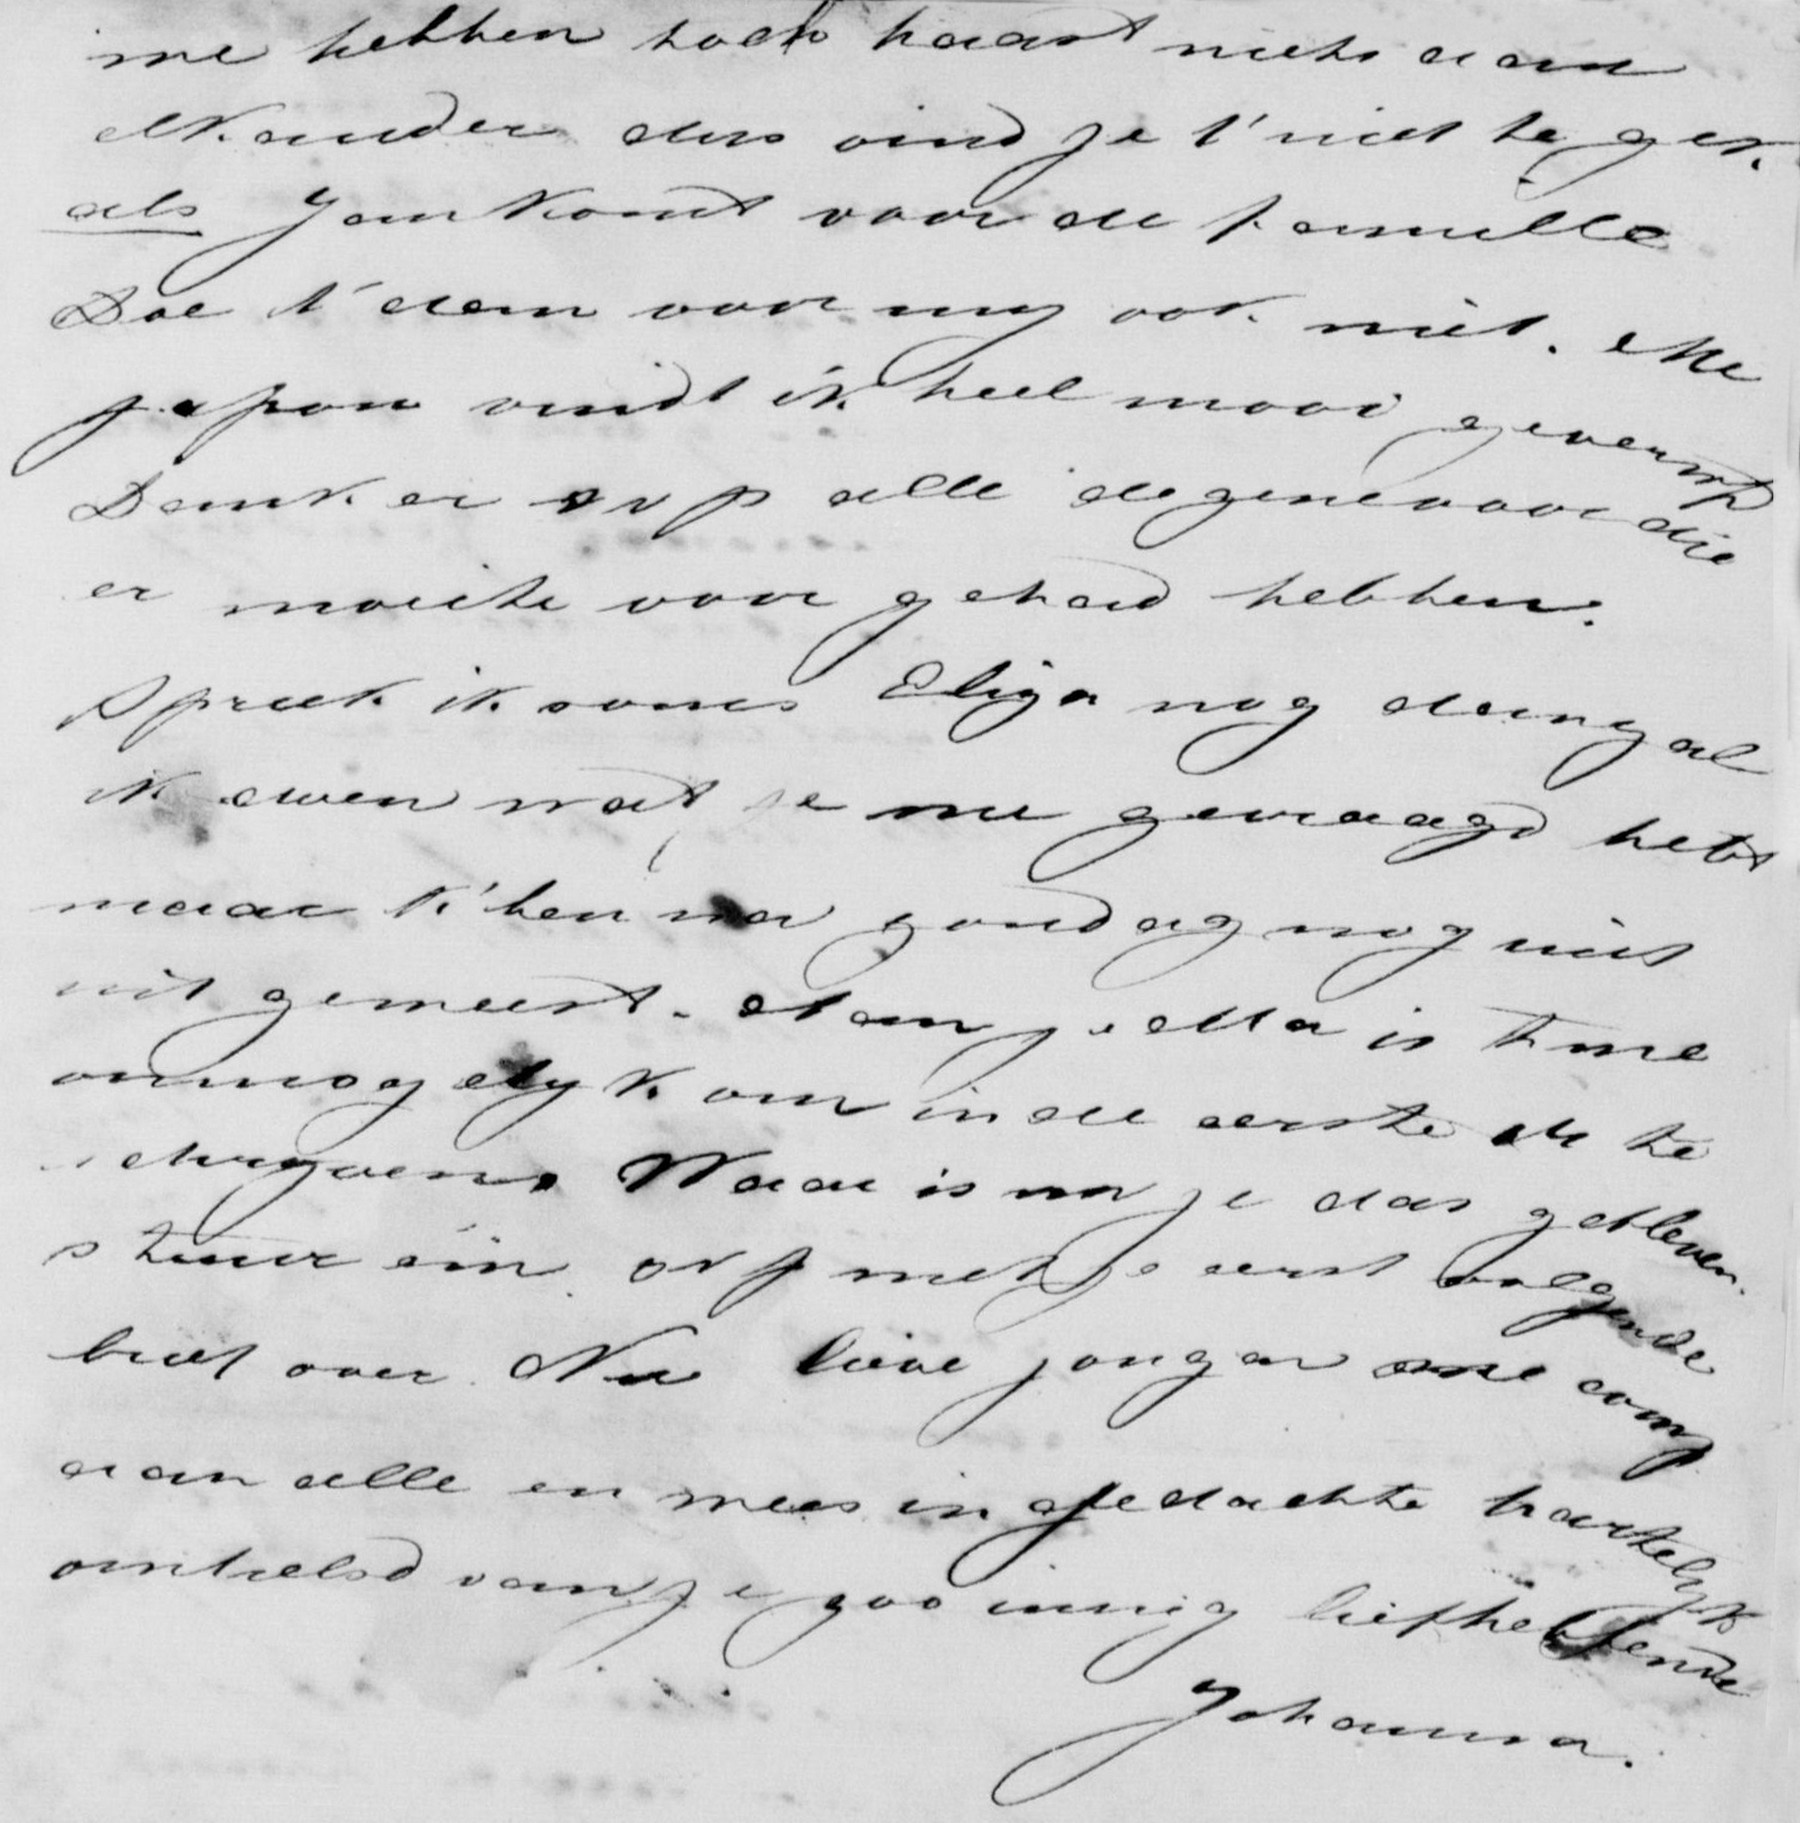 we hebben toch haast niets aan
elkander dus vind je t' niet te gek
als Jan komt voor de familie
Doe t' dan voor my ook niet. Me
japon vindt ik heel mooi geverwd
Dank er svp alle degene voor die
er moeite voor gehad hebben.
Spreek ik soms Eliza nog dan zal
ik doen wat je me gevraagd hebt
maar k' ben na zondag nog niet
uit geweest. Aan je Ma is t' me
onmogelyk om in de eerste te
schryven. Waar is je das gebleven.
stuur één svp met je eerst volgende
brief over. Nu lieve jongen me comp
aan alle en wees in gedachte hartelyk
omhelsd van je zoo innig liefhebbende
Johanna.